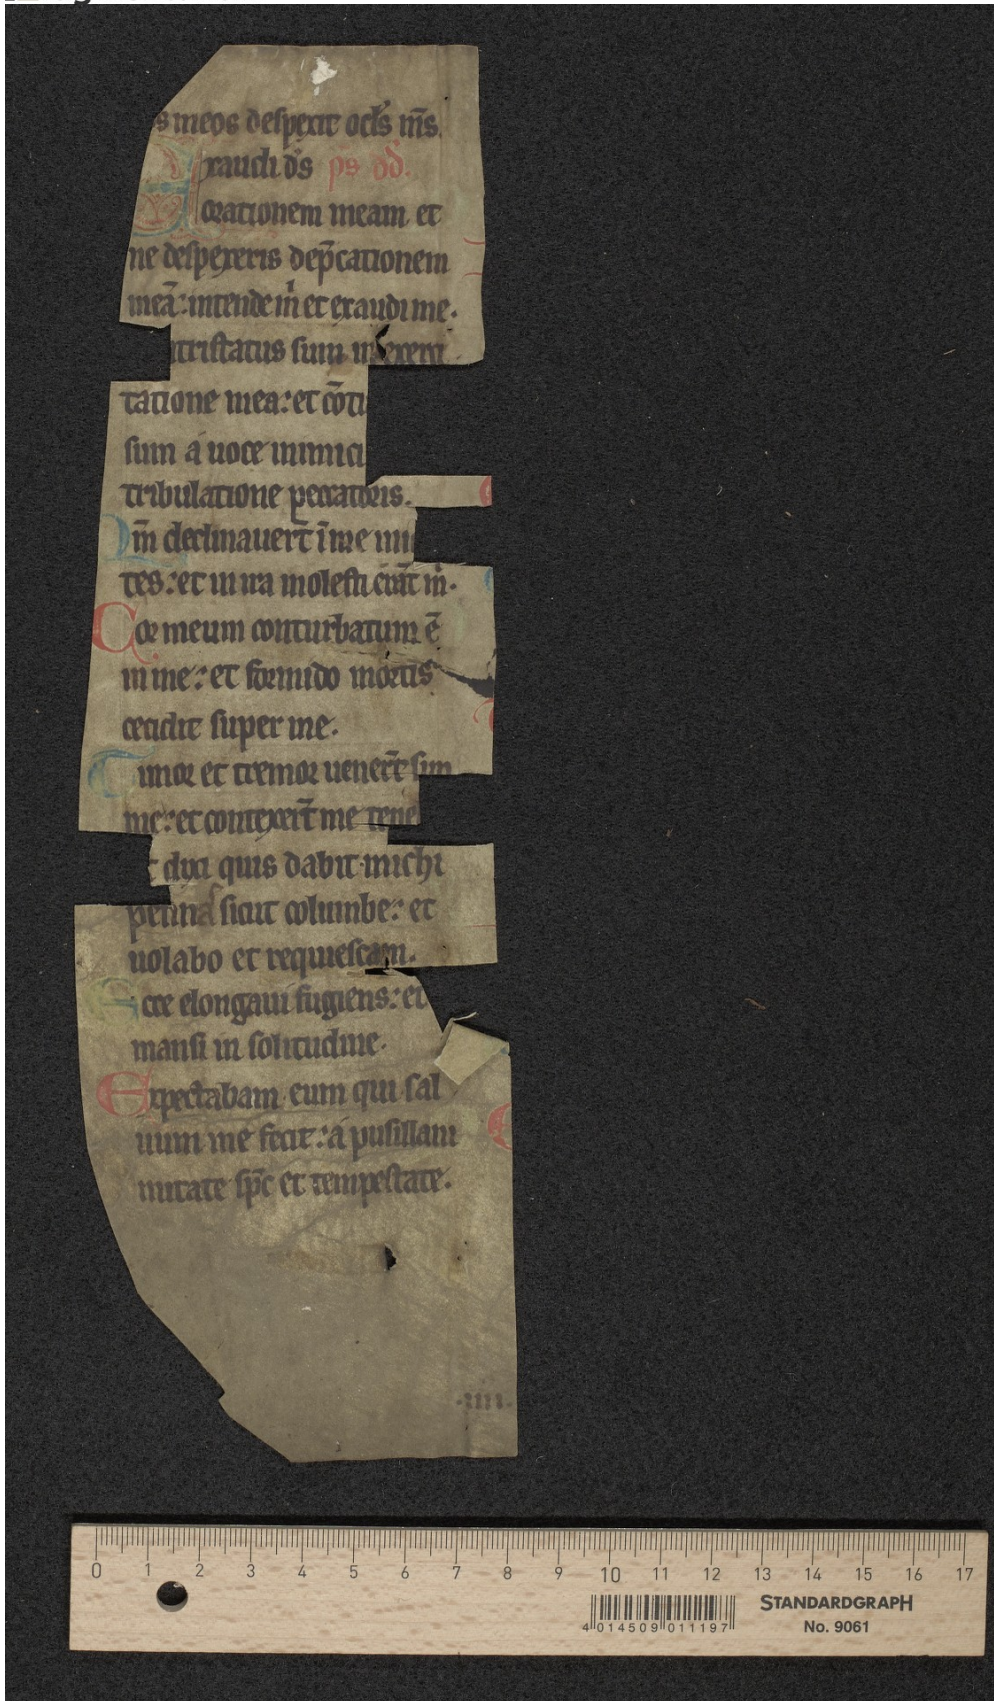 s meos despexit ocl's m̄s
Exaudi d̄s ps dd.
orationem meam et
ne despexeris dep̄cationem
meā: intende m̄ et exaudi me.
ntristatus sum in exerci
tatione mea: et cōtu
sum a uoce inimici
tribulatione peccatoris.
Qm̄ declinauerūt ī me
tes: et in ira molesti erūt m̄.
Cor meum conturbatum ē
in me: et formido mortis
cecidit super me.
Timor et tremor uenerūt sup
me: et contexerūt me tene
t dixi quis dabit michi
pennas sicut columbe: et
uolabo et requiescam.
Ecce elongaui fugiens: et
mansi in solitudine.
Expectabam eum qui sal
uum me fecit: a pusillani
mitate sp̄c et tempestate.
.iiii.
0 1 2 3 4 5 6 7 8 9 10 11 12 13 14 15 16 17
4 014509 011197
STANDARDGRAPH
No. 9061